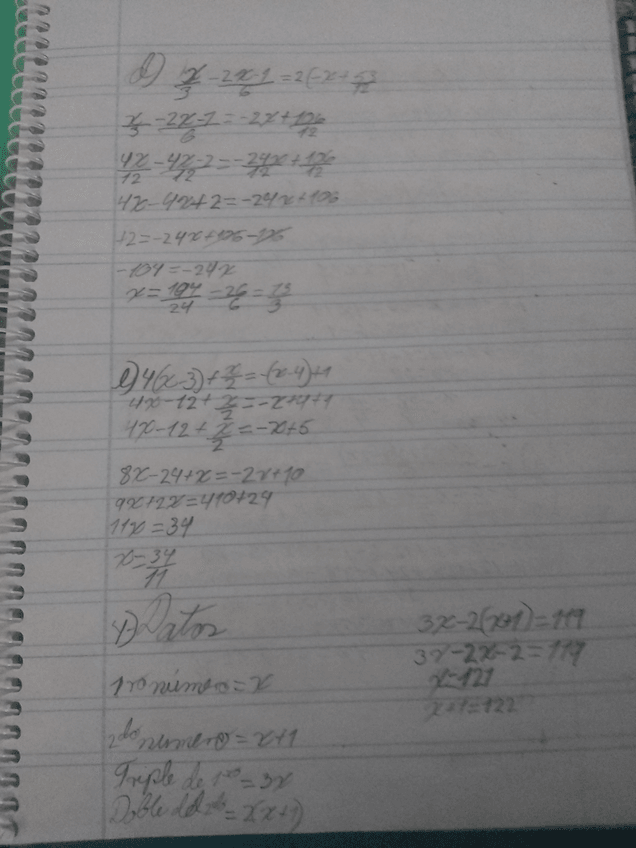 d) x/3 - 2x-1/6 = 2(-x + 53/12
x/3 - 2x-1/6 = -2x + 106/12
4x/12 - 4x-2/12 = -24x/12 + 106/12
4x-4x+2 = -24x+106
+2 = -24x+106-106
-104 = -24x
x = 104/24 - 26/6 = 13/3
e) 4(x-3) + x/2 = -(x-4)+1
4x-12 + x/2 = -x+4+1
4x-12 + x/2 = -x+5
8x-24+x = -2x+10
9x+2x = 10+24
11x = 34
x = 34/11
4) Datos
1ro número = x
2do número = x+1
Triple de 1ro = 3x
Doble del 2do = 2(x+1)
3x-2(x+1) = 119
3x-2x-2 = 119
x = 121
x+1 = 122